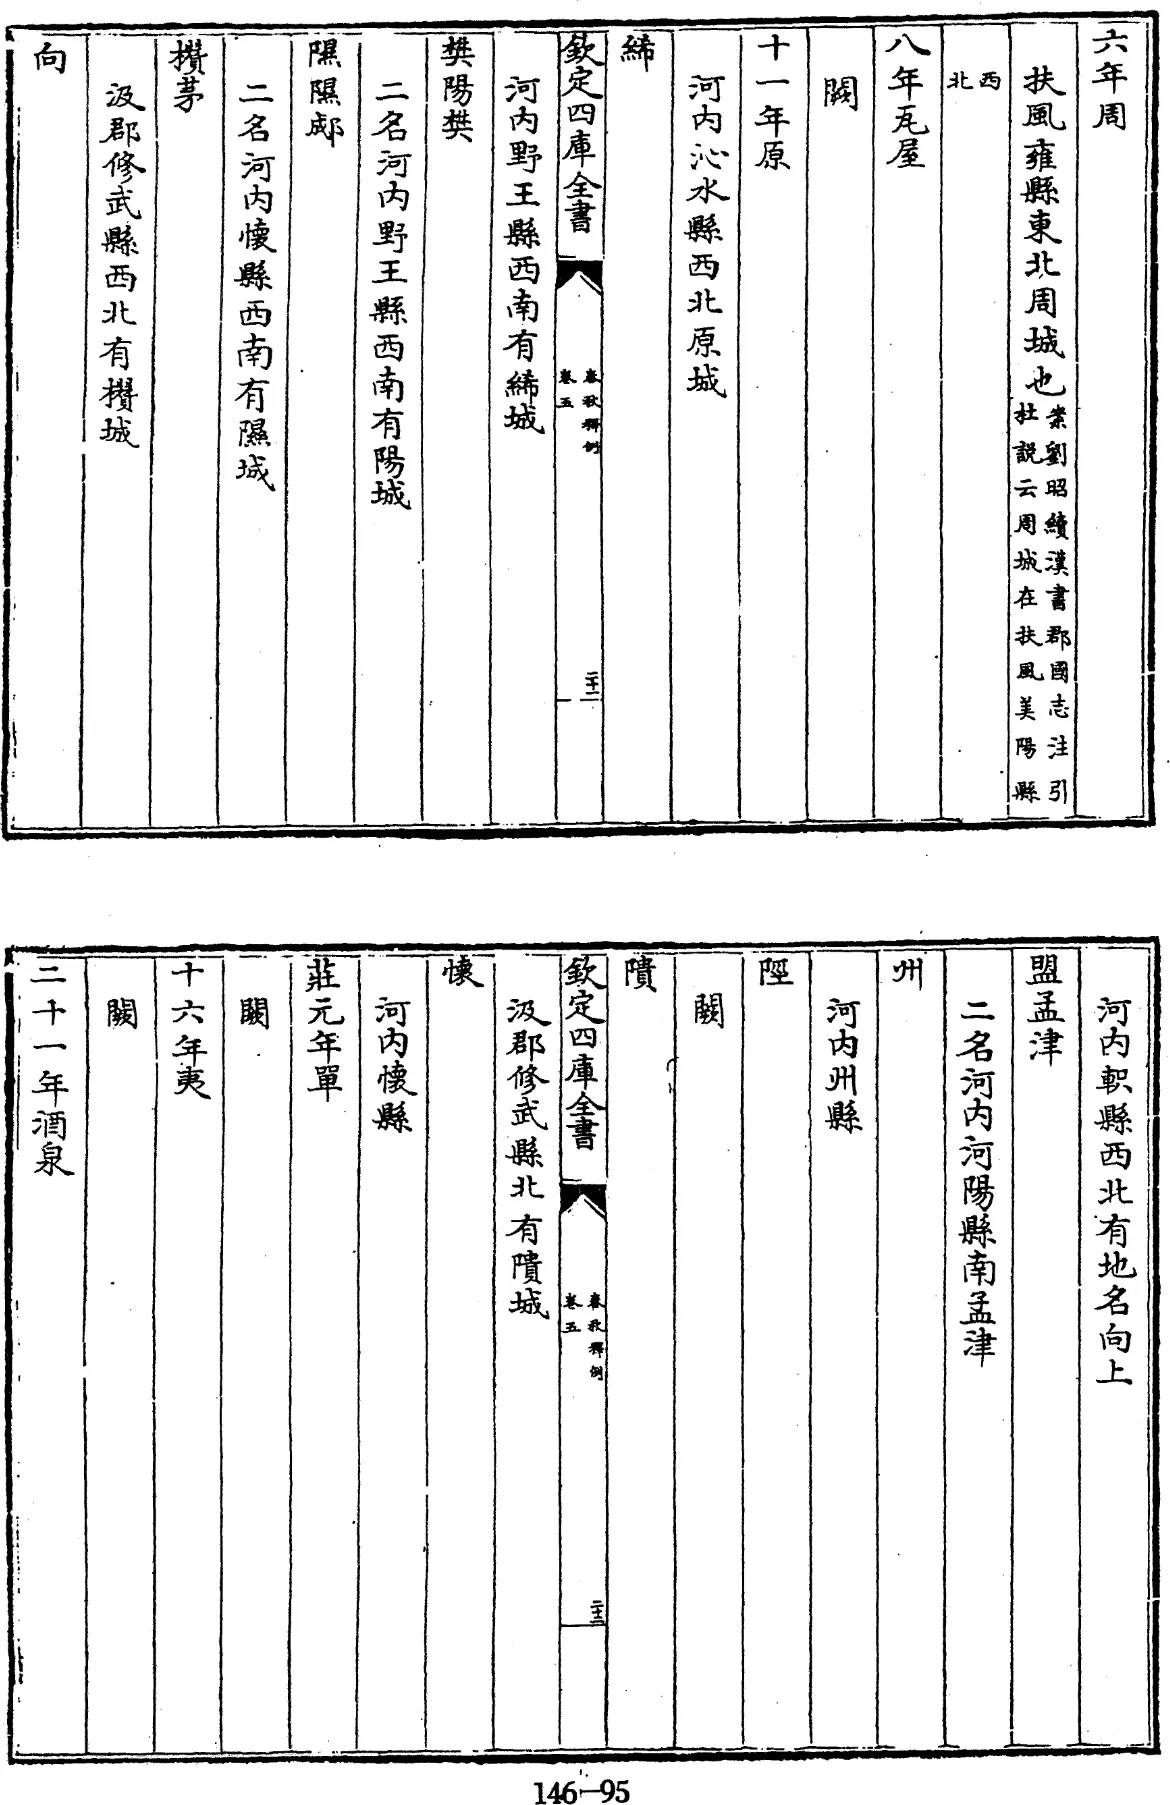 六年周
扶風雍縣東北周城也案劉昭續漢書郡國志注引
杜說云周城在扶風美陽縣
西
北
八年瓦屋
闕
十一年原
河内沁水縣西北原城
絺
欽定四庫全書
春秋釋例
卷五
二十二
河内野王縣西南有絺城
樊陽樊
二名河内野王縣西南有陽城
隰隰郕
二名河内懷縣西南有隰城
攢茅
汲郡修武縣西北有攢城
向
河内軹縣西北有地名向上
盟孟津
二名河内河陽縣南孟津
州
河内州縣
陘
闕
隤
欽定四庫全書
春秋釋例
卷五
二十三
汲郡修武縣北有隤城
懷
河内懷縣
莊元年單
闕
十六年夷
闕
二十一年酒泉
146-95